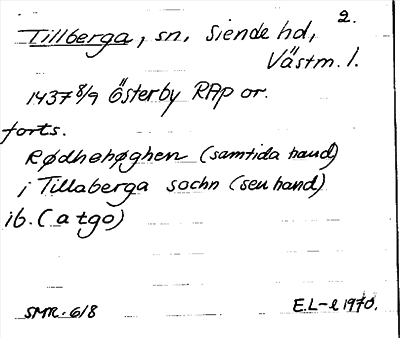 2.
Tillberga, sn, Siende hd,
Västm. l.
1437 8/9 Österby RAp or.
forts.
Rødhehøghen (samtida hand)
i Tillaberga sochn (sen hand)
ib. (a tgo)
SMR. 6/8
E.L-l 1970.